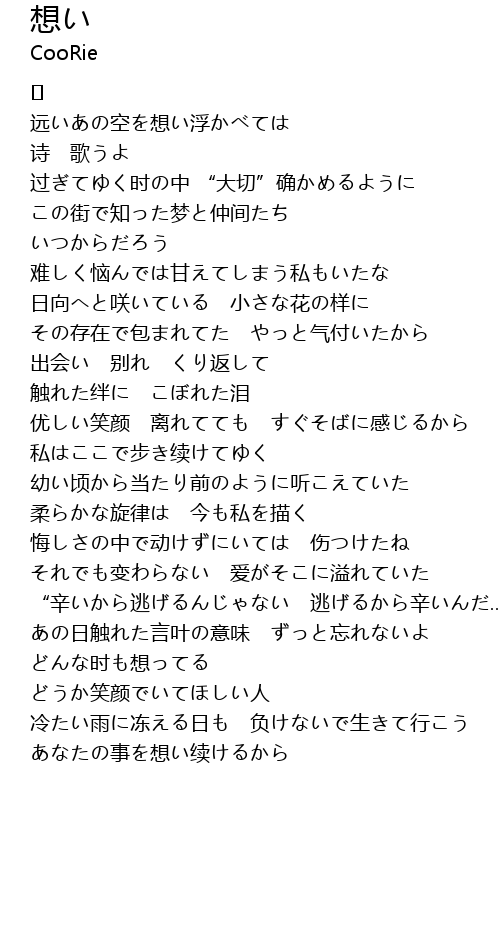 想い
CooRie
[]
远いあの空を想い浮かべては
诗　歌うよ
过ぎてゆく时の中　“大切”确かめるように
この街で知った梦と仲间たち
いつからだろう
难しく悩んでは甘えてしまう私もいたな
日向へと咲いている　小さな花の样に
その存在で包まれてた　やっと气付いたから
出会い　别れ　くり返して
触れた绊に　こぼれた泪
优しい笑颜　离れてても　すぐそばに感じるから
私はここで步き续けてゆく
幼い顷から当たり前のように听こえていた
柔らかな旋律は　今も私を描く
悔しさの中で动けずにいては　伤つけたね
それでも变わらない　爱がそこに溢れていた
“辛いから逃げるんじゃない　逃げるから辛いんだ..
あの日触れた言叶の意味　ずっと忘れないよ
どんな时も想ってる
どうか笑颜でいてほしい人
冷たい雨に冻える日も　负けないで生きて行こう
あなたの事を想い续けるから